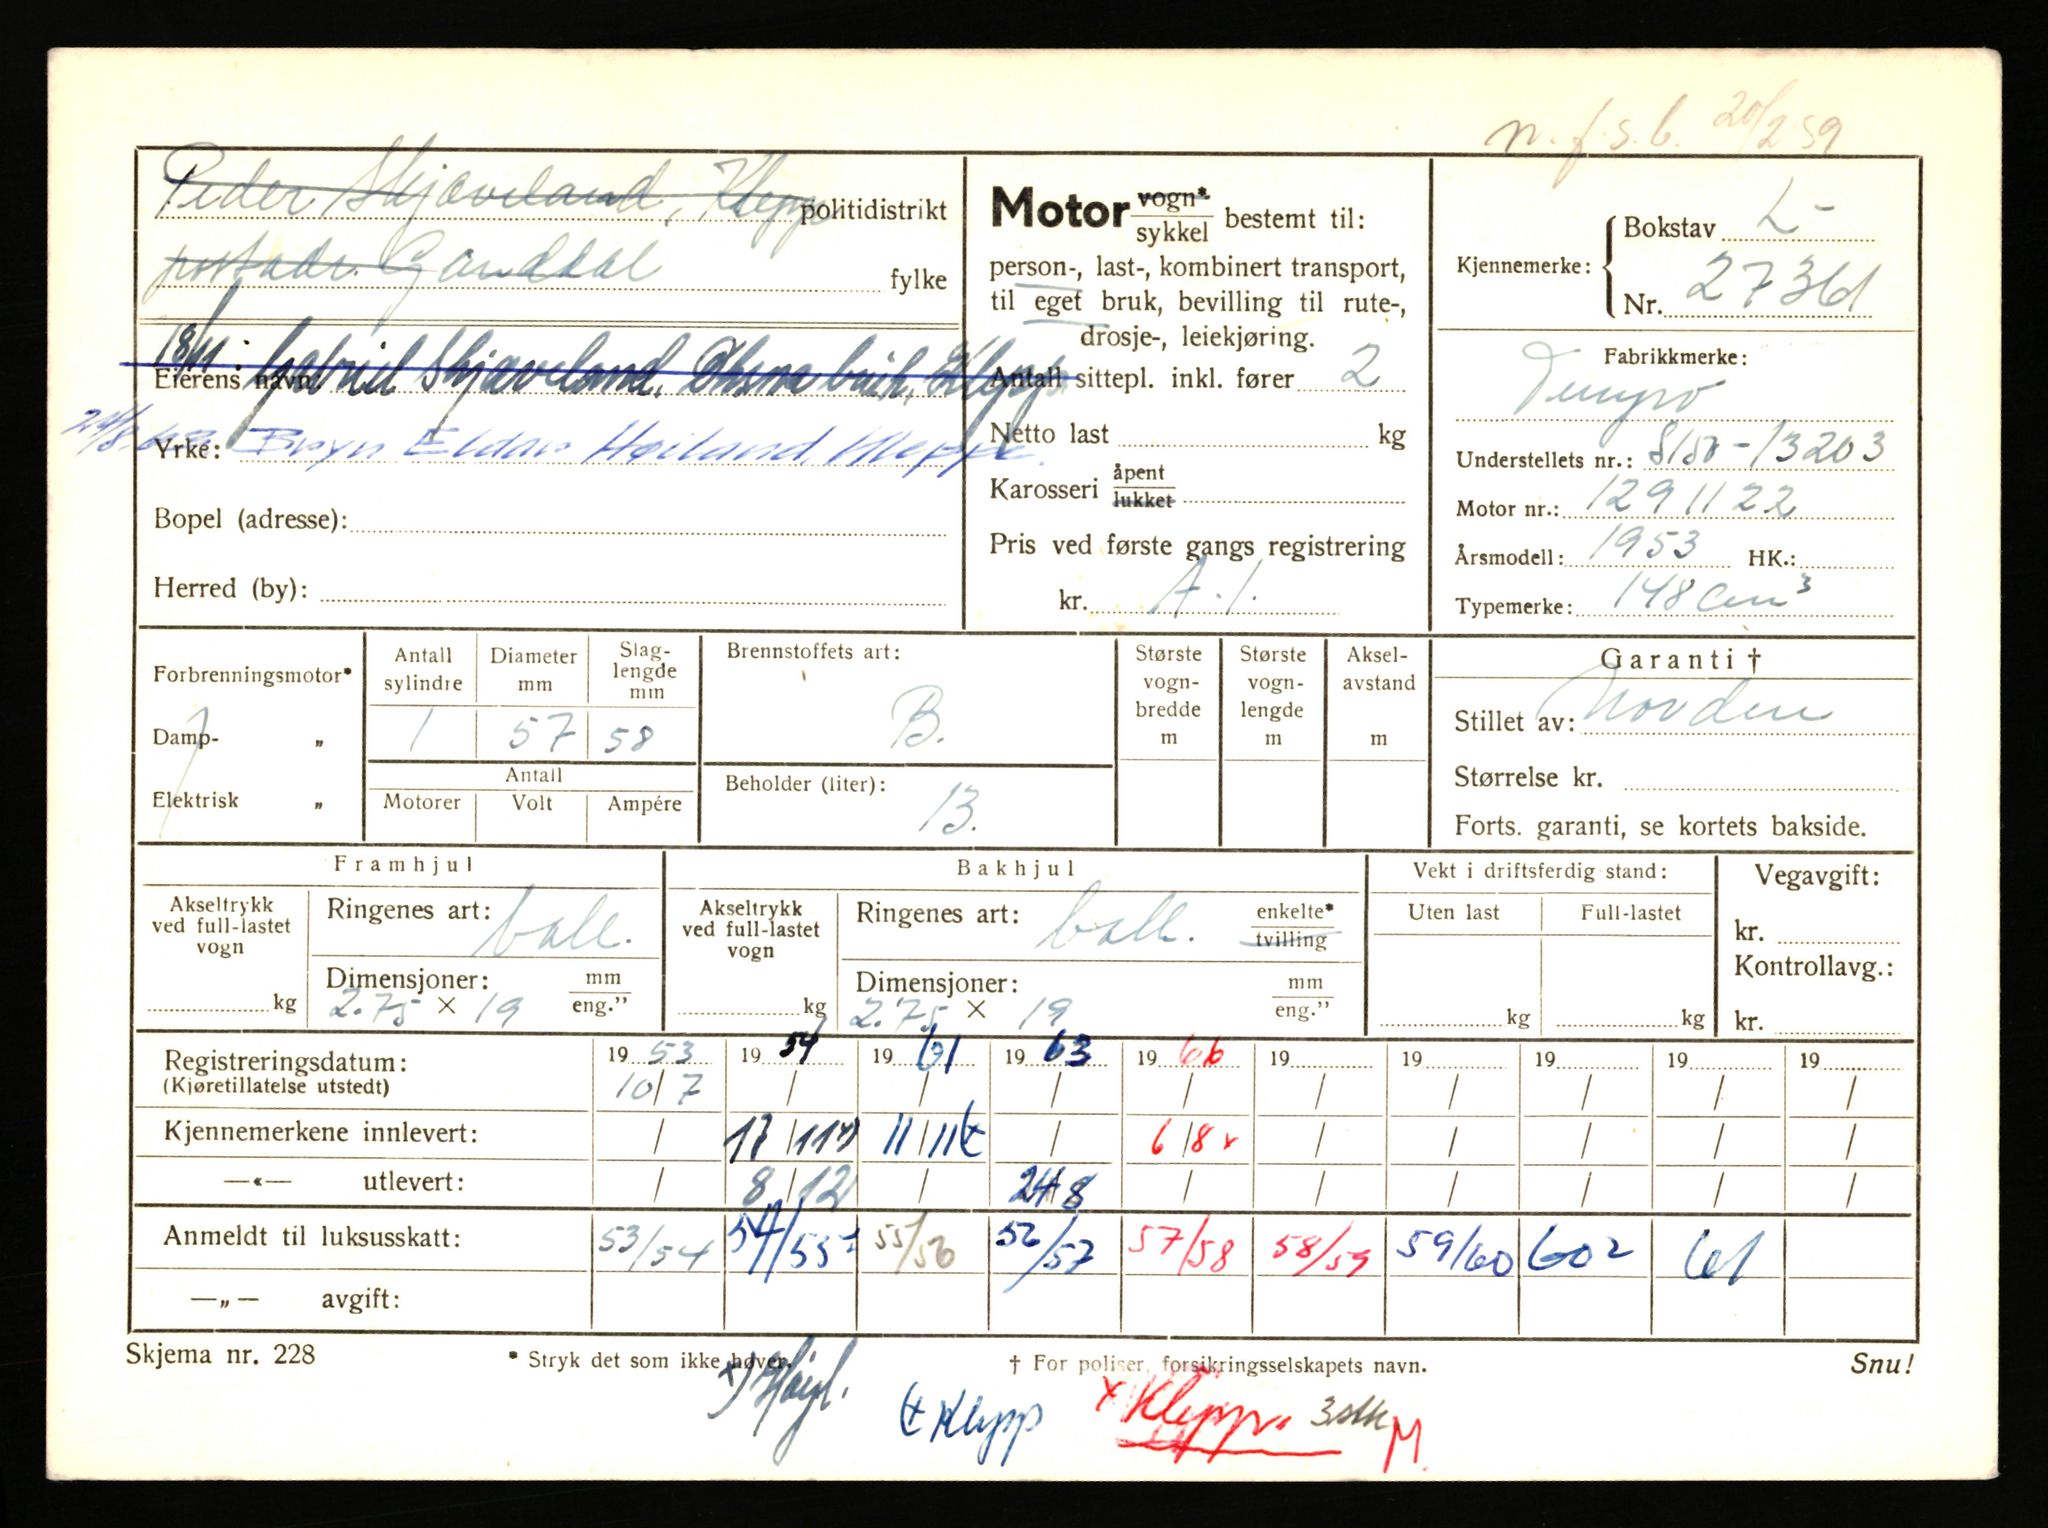 n.f.s.b. 20/2 59
Peder Skjæveland, Klepp politidistrikt
postadr. Ganddal fylke
18/11. Gabriel Skjæveland, Klepp
Eierens navn:
24/8.63 Bryn Eldar Høiland, Kleppe.
Yrke:
Bopel (adresse):
Herred (by):
Motor vogn* / sykkel bestemt til:
person-, last-, kombinert transport,
til eget bruk, bevilling til rute-,
drosje-, leiekjøring.
Antall sittepl. inkl. fører 2
Netto last kg
Karosseri åpent / lukket
Pris ved første gangs registrering
kr. A.1.
Kjennemerke: Bokstav L-
Nr. 27361
Fabrikkmerke:
Tempo
Understellets nr.: S150-13203
Motor nr.: 1291122
Årsmodell: 1953 HK.:
Typemerke: 148 cm³
Forbrenningsmotor*
Damp- „
Elektrisk „
Antall sylindre Diameter mm Slaglengde mm
1 57 58
Antall
Motorer Volt Ampére
Brennstoffets art:
B.
Beholder (liter):
13.
Største vogn- bredde m
Største vogn- lengde m
Aksel- avstand m
Garanti †
Stillet av: Norden
Størrelse kr.
Forts. garanti, se kortets bakside.
Framhjul
Akseltrykk ved full-lastet vogn kg
Ringenes art: ball.
Dimensjoner: mm / eng.”
2.75 × 19
Bakhjul
Akseltrykk ved full-lastet vogn kg
Ringenes art: ball. enkelte* / tvilling
Dimensjoner: mm / eng.”
2.75 × 19
Vekt i driftsferdig stand:
Uten last Full-lastet
kg kg
Vegavgift:
kr.
Kontrollavg.:
kr.
Registreringsdatum: 1953 1954 1961 1963 1966 19 19 19 19 19
(Kjøretillatelse utstedt) 10/7 / / / / / / / / /
Kjennemerkene innlevert: / 17/11 x) 11/11 (+ / 6/8 x / / / / /
—«— utlevert: / 8/12 / 24/8 / / / / / /
Anmeldt til luksusskatt: 53/54 54/55 55/56 56/57 57/58 58/59 59/60 60 2 61
—„— avgift:
Skjema nr. 228 * Stryk det som ikke høver. † For poliser, forsikringsselskapets navn. Snu!
(+ Klepp x Klepp. 3 stk M.